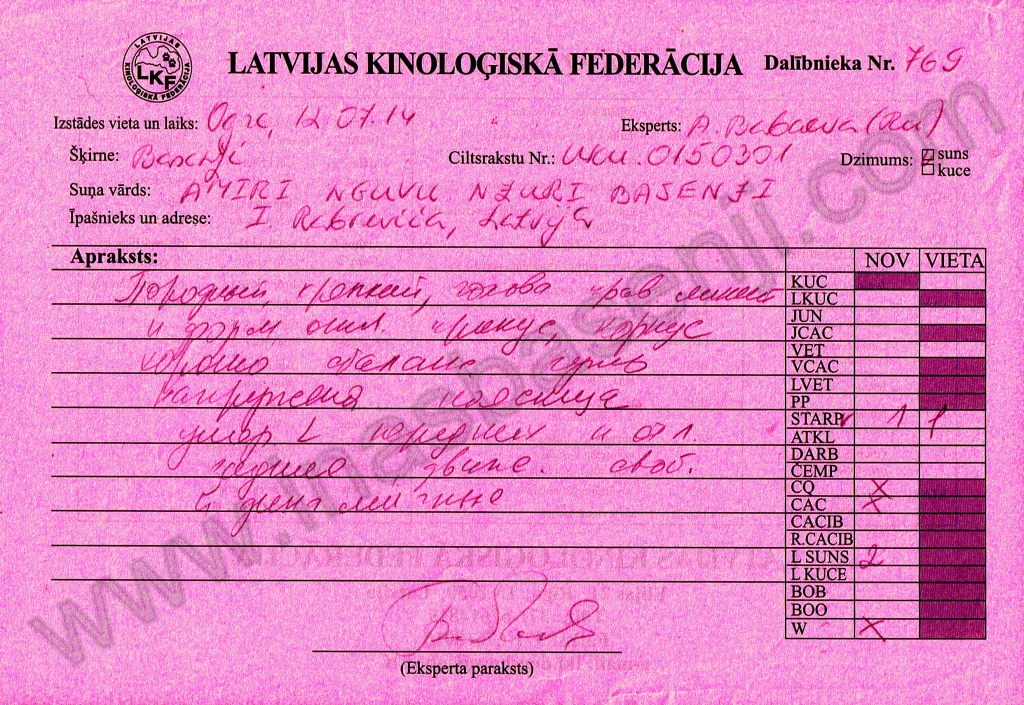 LATVIJAS KINOLOĢISKĀ FEDERĀCIJA
LKF
LATVIJAS KINOLOĢISKĀ FEDERĀCIJA Dalībnieka Nr. 769
Izstādes vieta un laiks: Ogre, 12.07.14 Eksperts: A.
Šķirne: Basenji Ciltsrakstu Nr.: UKU.0150301 Dzimums: suns
kuce
Suņa vārds: AMIRI NGUVU NZURI BASENJI
Īpašnieks un adrese: I. Latvija
Apraksts:
NOV VIETA
Породный, крепкий, голова прав. линий
KUC
LKUC
и форм, отл. прикус, корпус
JUN
JCAC
хорошо баланс
VET
VCAC
LVET
напряжена поясница
PP
STARP 1 1
передних и отл.
ATKL
DARB
задние, движ. своб.
ČEMP
CQ X
и динамично
CAC X
CACIB
R.CACIB
L SUNS 2
L KUCE
BOB
BOO
W X
(Eksperta paraksts)
www.inasbasenji.com